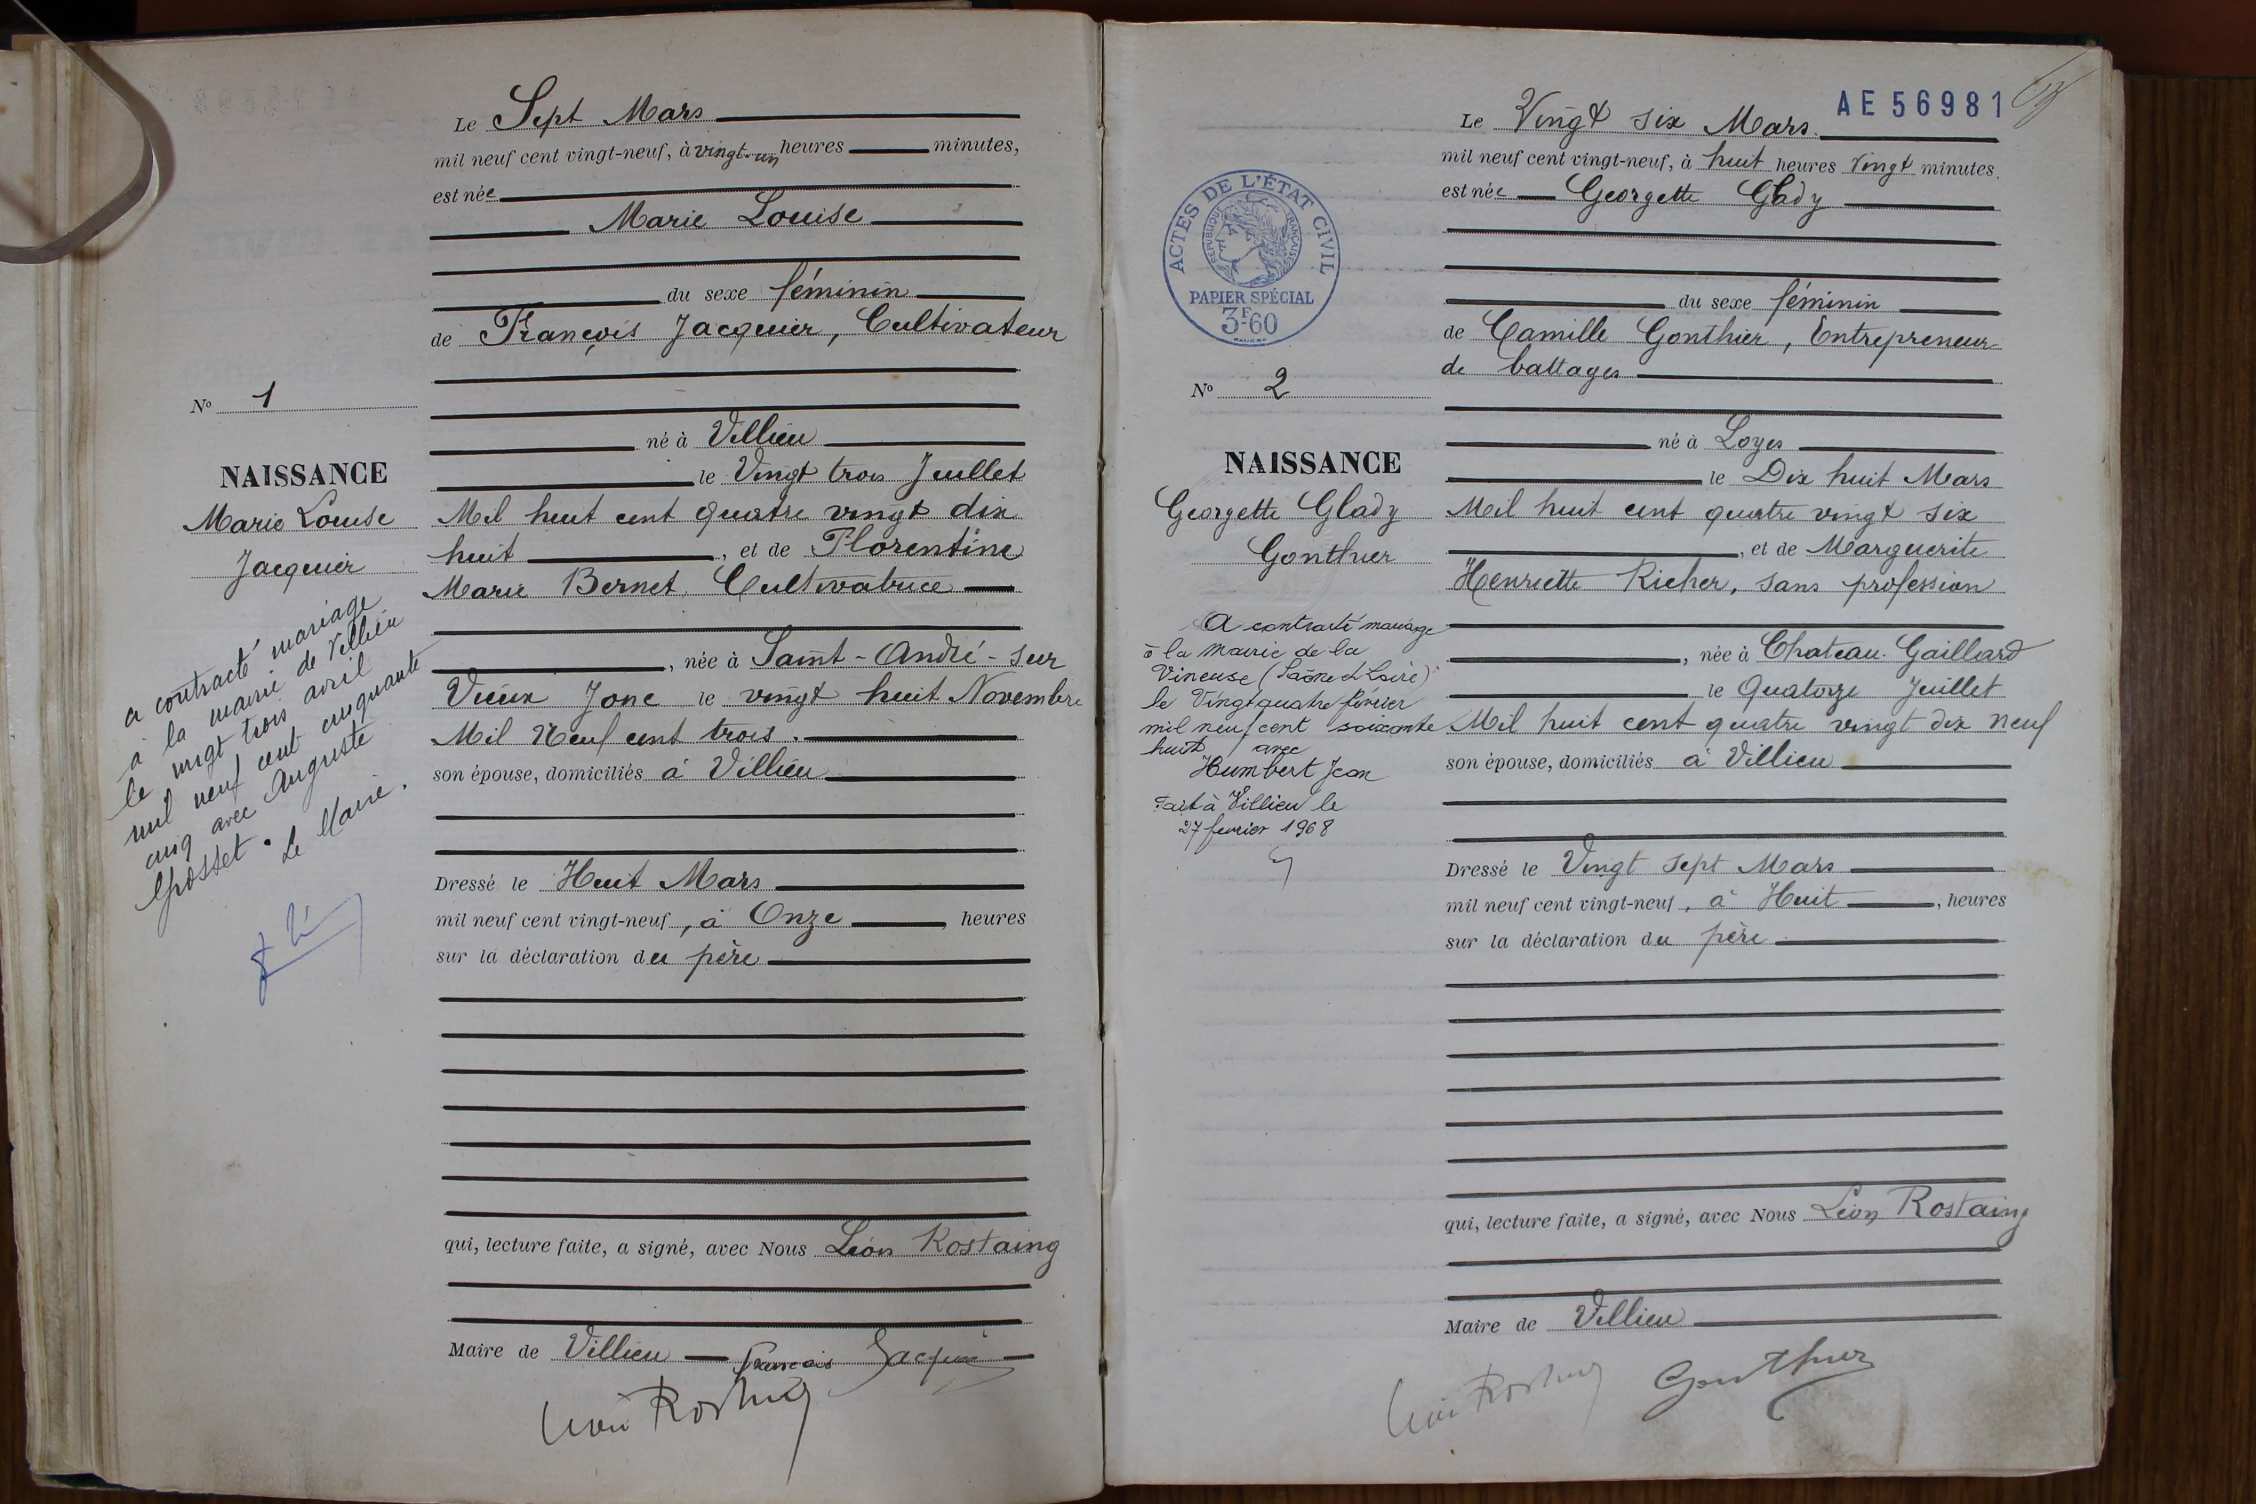 Le Sept Mars
mil neuf cent vingt-neuf, à vingt-un heures minutes,
est née
Marie Louise
du sexe féminin
de François Jacquier, Cultivateur
né à Villieu
le Vingt trois Juillet
Mil huit cent quatre vingt dix
huit, et de Florentine
Marie Bernet, Cultivatrice
, née à Saint-André-sur
Vieux Jonc le vingt huit Novembre
Mil Neuf cent trois.
son épouse, domiciliés à Villieu
Dressé le Huit Mars
mil neuf cent vingt-neuf, à Onze, heures
sur la déclaration du père
qui, lecture faite, a signé, avec Nous Léon Rostaing
Maire de Villieu
François Jacquier
Léon Rostaing
No 1
NAISSANCE
Marie Louise
Jacquier
a contracté mariage
à la mairie de Villieu
le vingt trois avril
mil neuf cent cinquante
cinq avec Auguste
Grosset.
Le Maire.
AE 56981
Le Vingt six Mars
mil neuf cent vingt-neuf, à huit heures vingt minutes
est née Georgette Glady
du sexe féminin
de Camille Gonthier, Entrepreneur
de battages
né à Loyes
le Dix huit Mars
Mil huit cent quatre vingt six
, et de Marguerite
Henriette Richer, sans profession
, née à Chateau-Gaillard
le Quatorze Juillet
Mil huit cent quatre vingt dix neuf
son épouse, domiciliés à Villieu
Dressé le Vingt sept Mars
mil neuf cent vingt-neuf, à Huit, heures
sur la déclaration du père
qui, lecture faite, a signé, avec Nous Léon Rostaing
Maire de Villieu
Léon Rostaing Gonthier
ACTES DE L'ÉTAT CIVIL
RÉPUBLIQUE FRANÇAISE
PAPIER SPÉCIAL
3F60
No 2
NAISSANCE
Georgette Glady
Gonthier
A contracté mariage
à la Mairie de la
Vineuse (Saône et Loire)
le Vingt quatre février
mil neuf cent soixante
huit avec
Humbert Jean
Fait à Villieu le
27 fevrier 1968